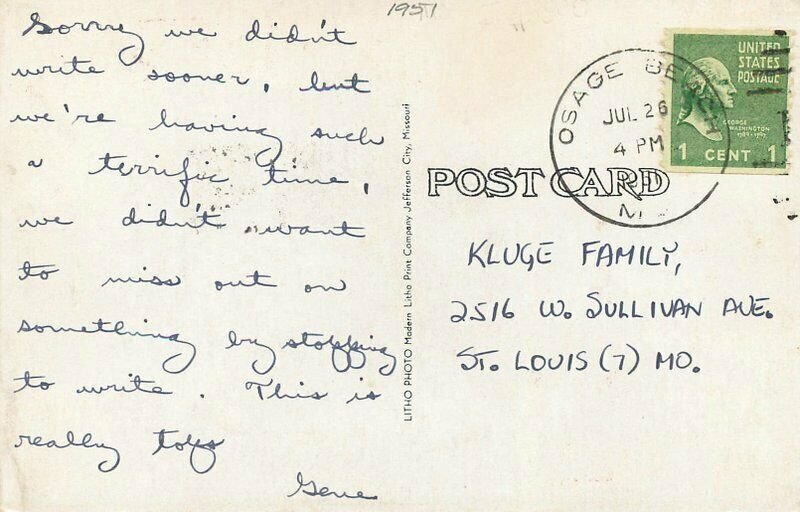 1951
Sorry we didn't
write sooner, but
we're having such
a terrific time,
we didn't want
to miss out on
something by stopping
to write. This is
really tops
Gene
LITHO PHOTO Modern Litho Print Company Jefferson City, Missouri
OSAGE BEACH
JUL 26
4 PM
UNITED
STATES
POSTAGE
GEORGE
WASHINGTON
1789-1797
1 CENT 1
POST CARD
KLUGE FAMILY,
2516 W. SULLIVAN AVE.
ST. LOUIS (7) MO.